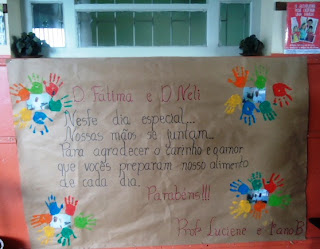 D. Fatima e D. Neli
Neste dia especial,...
Nossas mãos se juntam...
Para agradecer o carinho e amor
que vocês preparam nosso alimento
de cada dia.
Parabéns!!!
Profª Luciene e